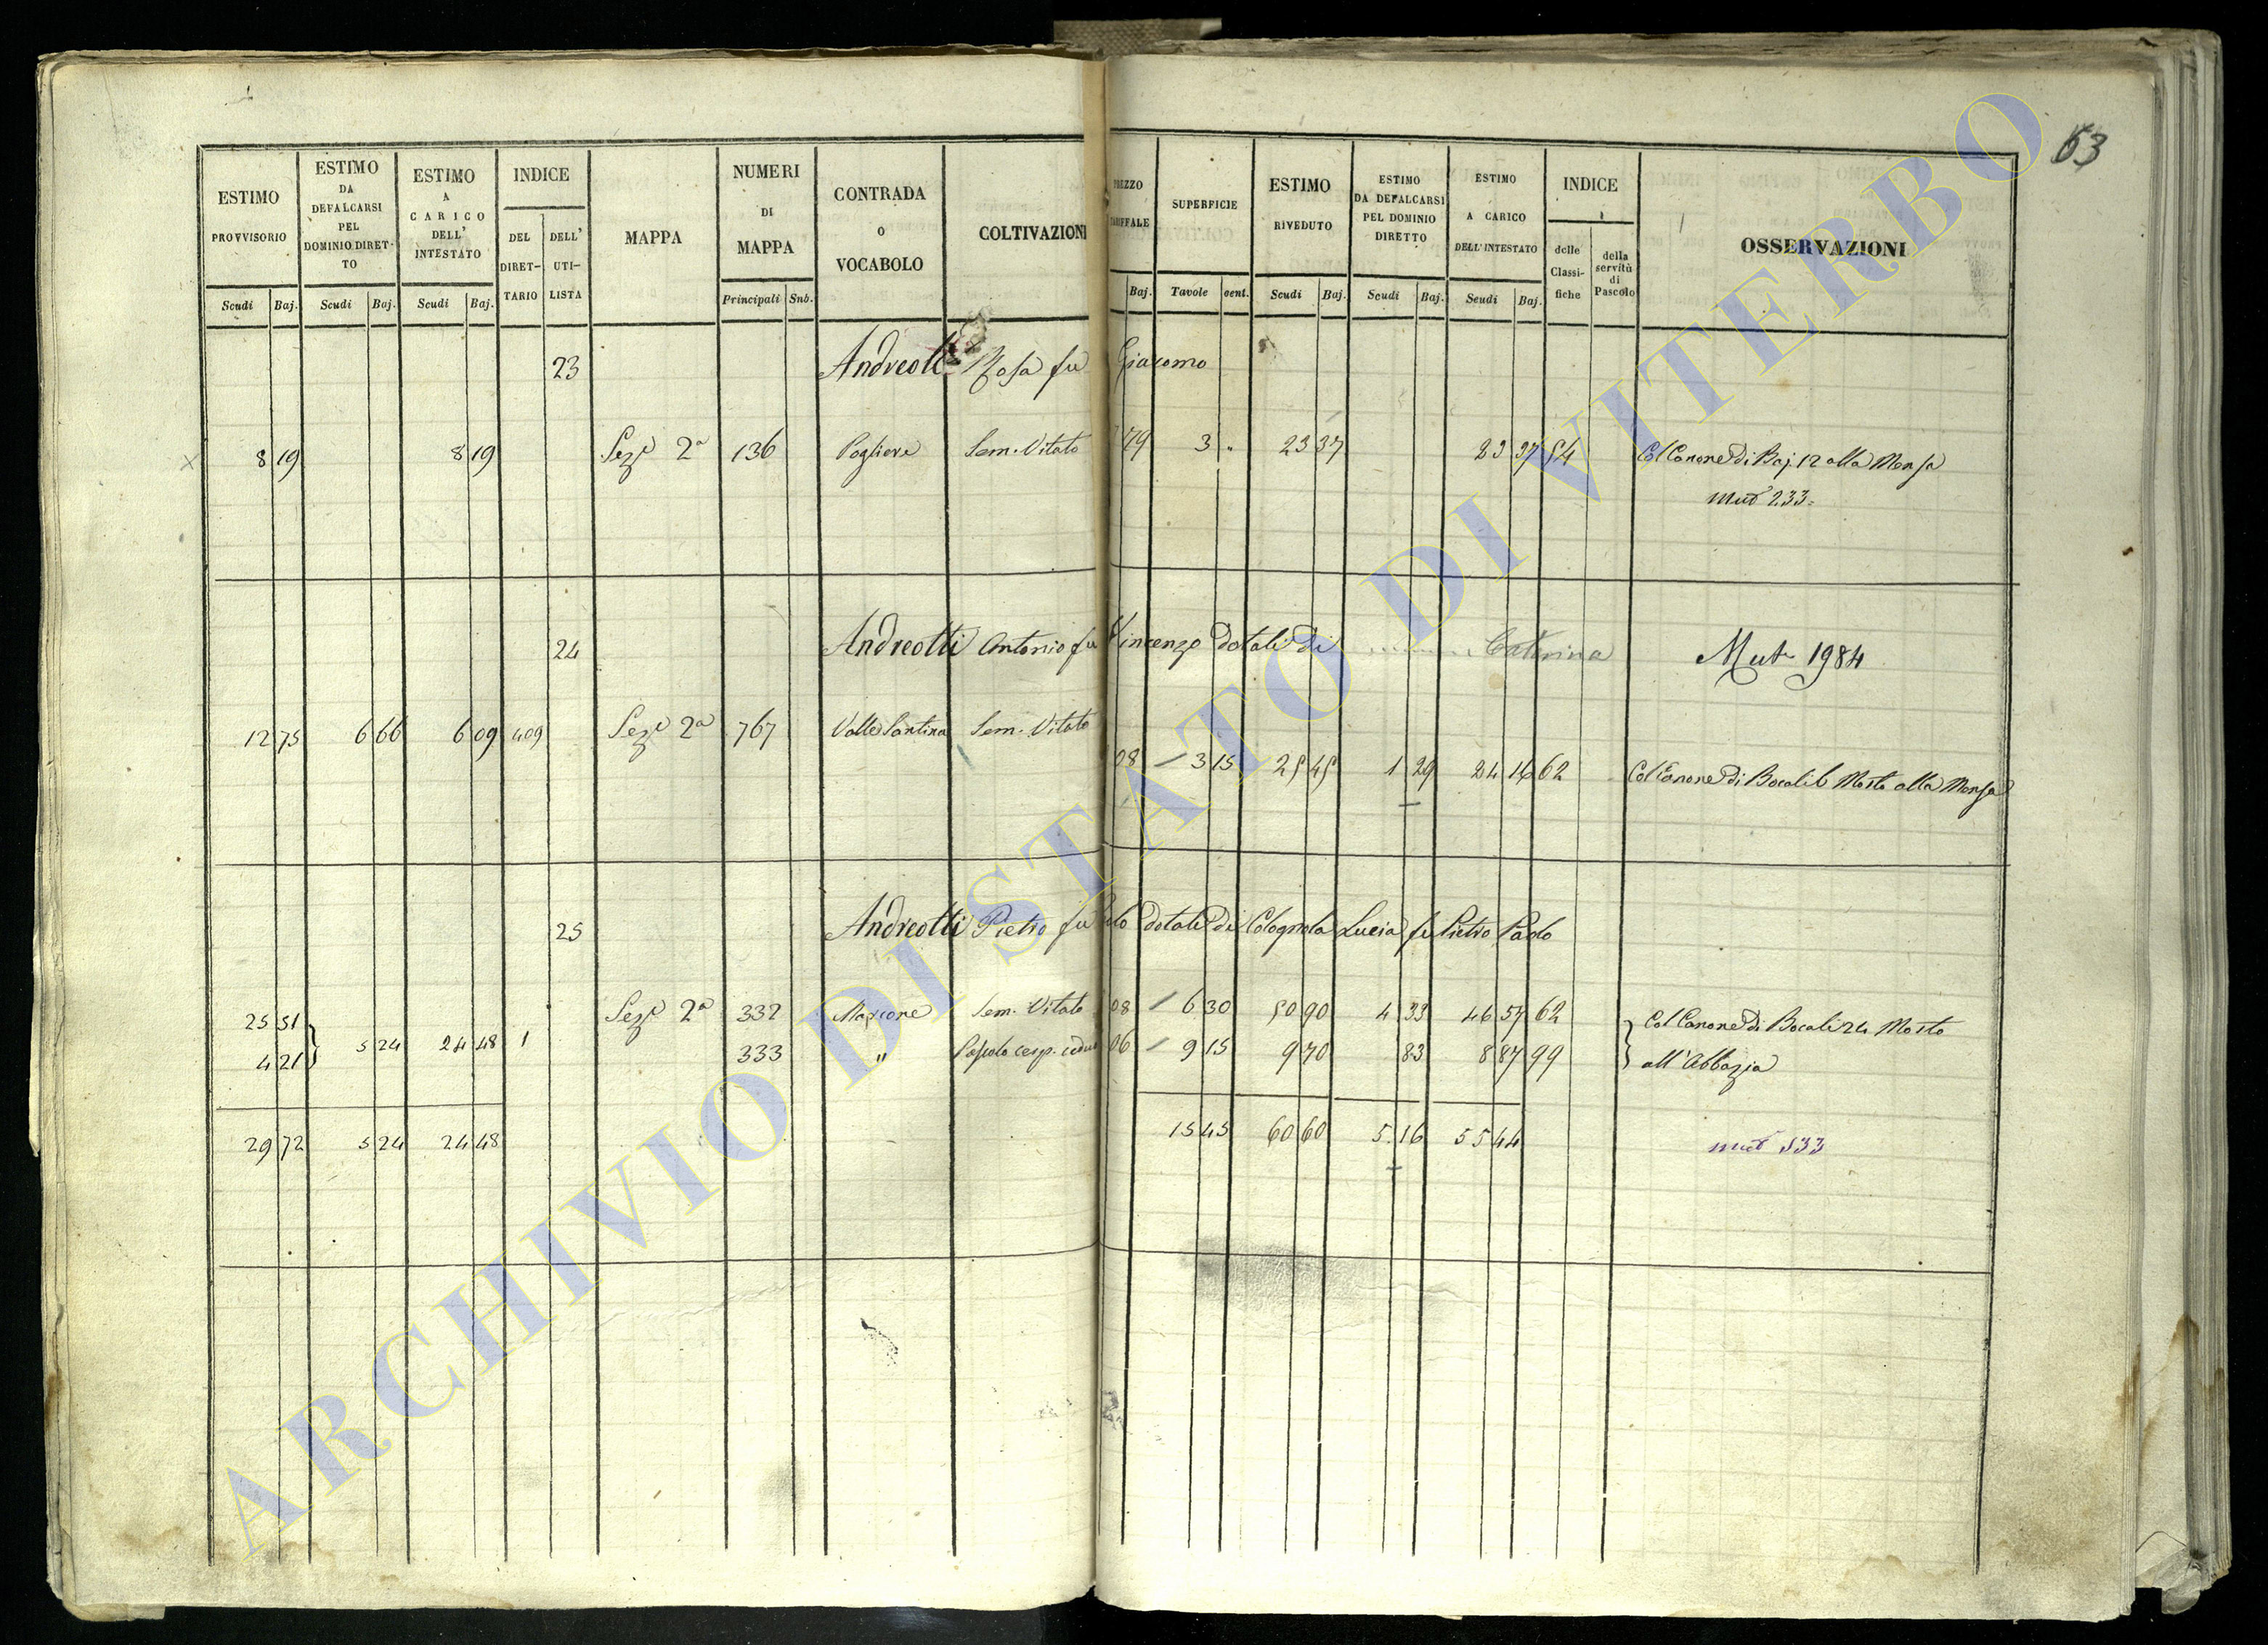 63
ESTIMO PROVVISORIO Scudi Baj.
ESTIMO DA DEFALCARSI PEL DOMINIO DIRETTO Scudi Baj.
ESTIMO A CARICO DELL' INTESTATO Scudi Baj.
INDICE DEL DIRETTARIO DELL' UTILISTA
MAPPA
NUMERI DI MAPPA Principali Sub.
CONTRADA O VOCABOLO
COLTIVAZIONI
PREZZO TARIFFALE Baj.
SUPERFICIE Tavole cent.
ESTIMO RIVEDUTO Scudi Baj.
ESTIMO DA DEFALCARSI PEL DOMINIO DIRETTO Scudi Baj.
ESTIMO A CARICO DELL' INTESTATO Scudi Baj.
INDICE delle Classifiche della servitù di Pascolo
OSSERVAZIONI
23 Andreoli Rosa fu Giacomo
8 19 8 19 Sez.e 2a 136 Pogliere Sem. Vitato 79 3 " 23 37 23 37 54 Col Canone di Baj. 12 alla Mensa
Mut 233
24 Andreotti Antonio fu Vincenzo dotali di Caterina Mut 1984
12 75 6 66 6 09 409 Sez.e 2a 767 Valle Santina Sem. Vitato
08 3 15 25 45 1 29 24 16 62 Col Canone di Bocali 6 Mosto alla Mensa
25 Andreotti Pietro fu dotali di Colognola Lucia fu Pietro Paolo
25 51 Sez.e 2a 332 Marcone Sem. Vitato 08 6 30 50 90 4 33 46 57 62 Col Canone di Bocali 24 Mosto
4 21 5 24 24 48 1 333 " Pascolo cesp. 06 9 15 9 70 83 8 87 99 all'Abbazia
29 72 5 24 24 48 15 45 60 60 5 16 55 44 Mut 533
ARCHIVIO DI STATO DI VITERBO